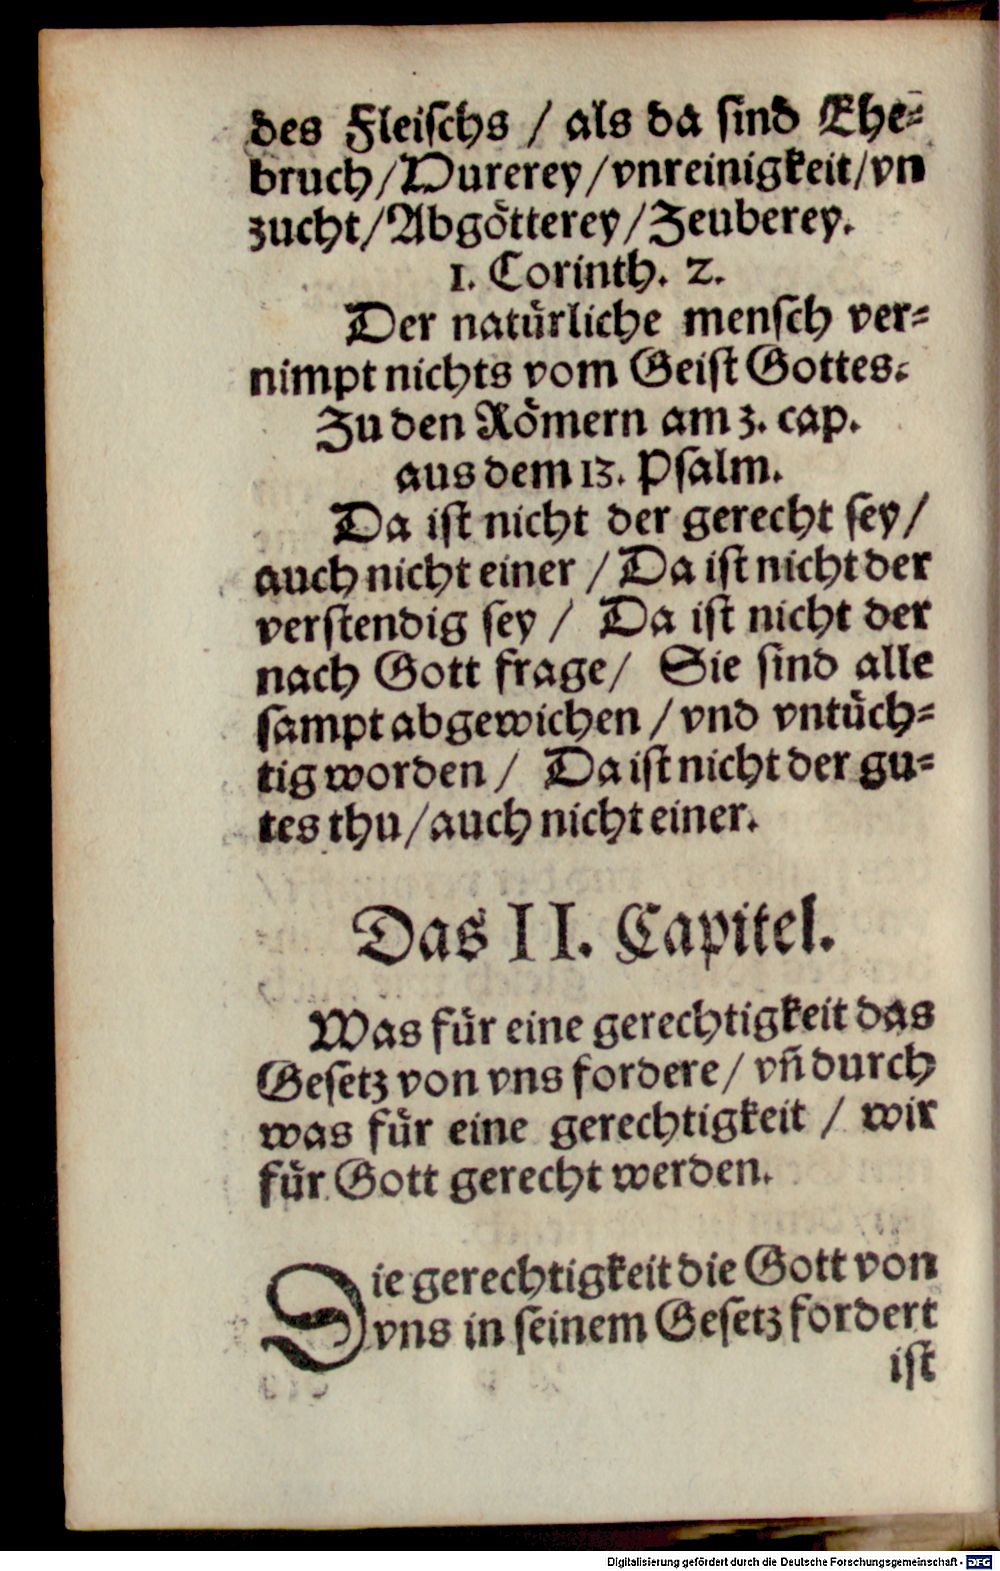 des Fleischs / als da sind Ehe-
bruch / Hurerey / vnreinigkeit / vn
zucht / Abgötterey / Zeuberey.
1. Corinth. 2.
Der natürliche mensch ver-
nimpt nichts vom Geist Gottes.
Zu den Römern am 3. cap.
aus dem 13. Psalm.
Da ist nicht der gerecht sey /
auch nicht einer / Da ist nicht der
verstendig sey / Da ist nicht der
nach Gott frage / Sie sind alle
sampt abgewichen / vnd vntüch-
tig worden / Da ist nicht der gu-
tes thu / auch nicht einer.
Das II. Capitel.
Was für eine gerechtigkeit das
Gesetz von vns fordere / vn̄ durch
was für eine gerechtigkeit / wir
für Gott gerecht werden.
Die gerechtigkeit die Gott von
vns in seinem Gesetz fordert
ist
Digitalisierung gefördert durch die Deutsche Forschungsgemeinschaft - DFG